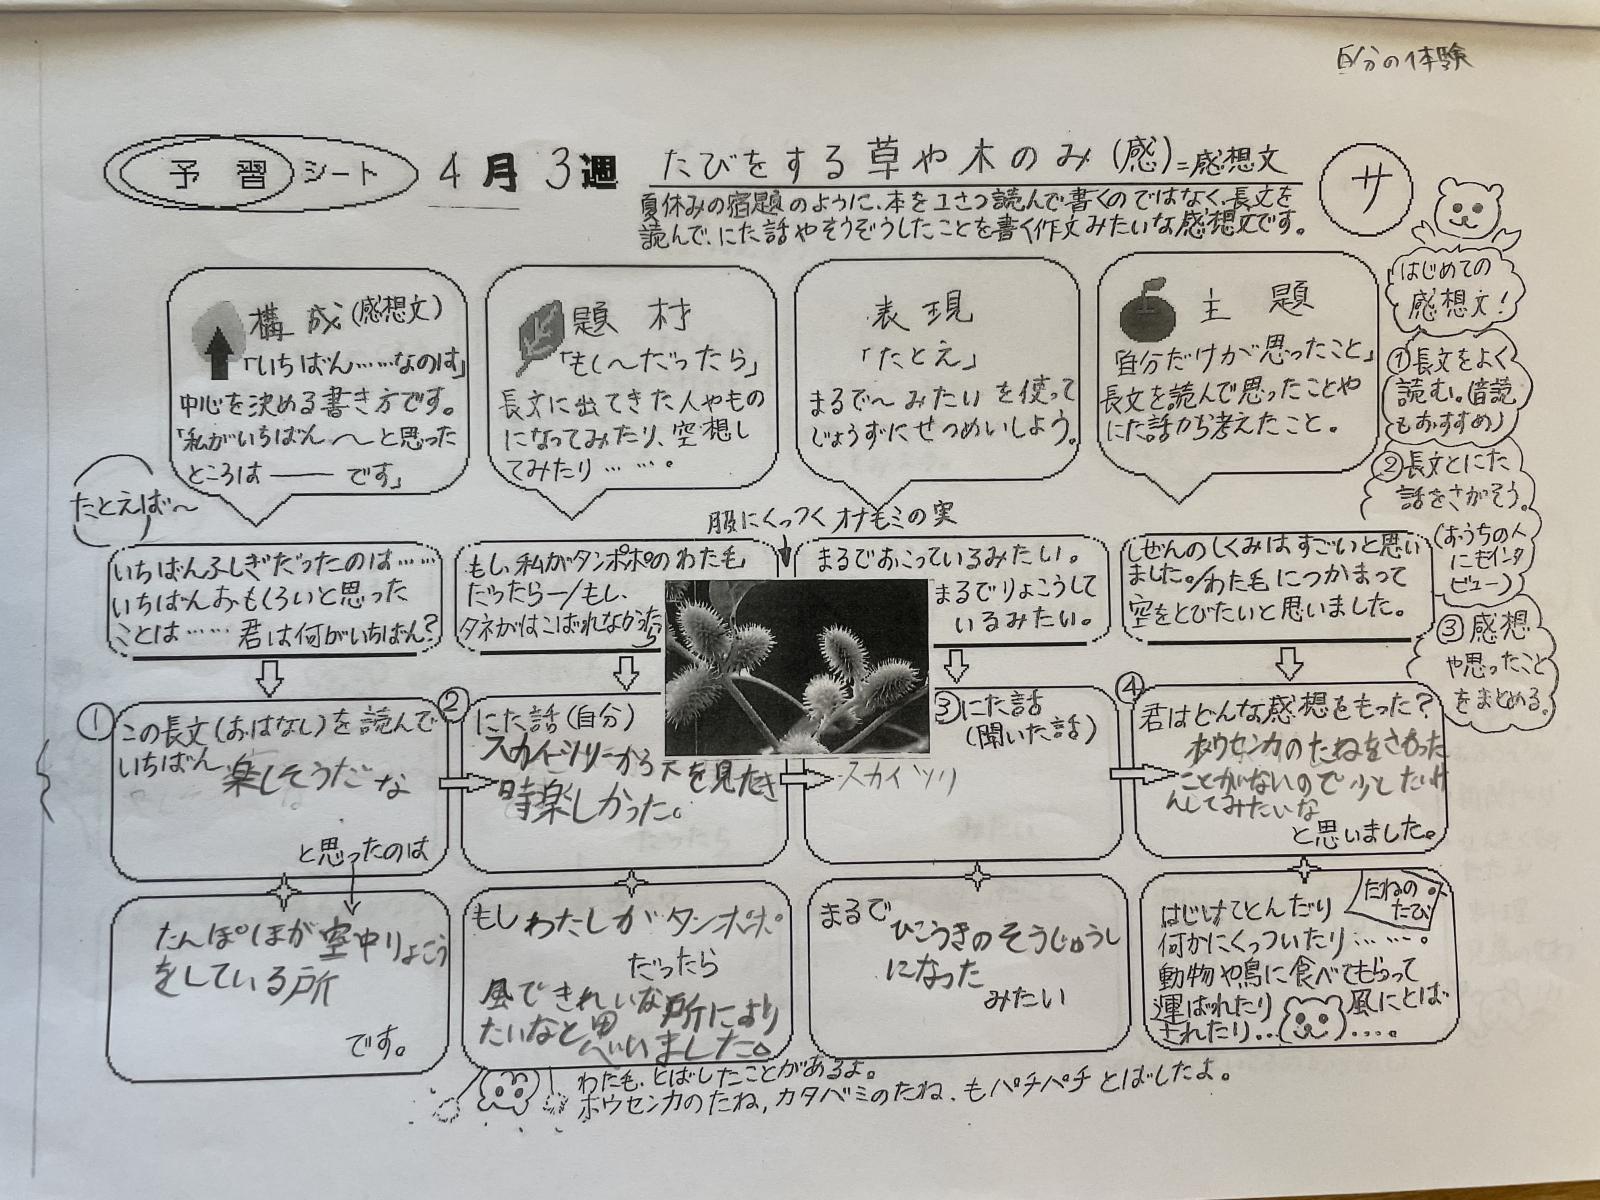 自分の体験
予習シート 4月3週 たびをする草や木のみ(感)=感想文
夏休みの宿題のように、本を1さつ読んで書くのではなく、長文を
読んで、にた話やそうぞうしたことを書く作文みたいな感想文です。
サ
はじめての
感想文!
①長文をよく
読む。(音読
もおすすめ)
②長文とにた
話をさがそう。
(おうちの人
にもインタ
ビュー)
③感想
や思ったこと
をまとめる。
構成(感想文)
「いちばん……なのは」
中心を決める書き方です。
「私がいちばん〜と思った
ところは―― です」
題材
「もし〜だったら」
長文に出てきた人やもの
になってみたり、空想し
てみたり……。
表現
「たとえ」
まるで〜みたい を使って
じょうずにせつめいしよう。
主題
「自分だけが思ったこと」
長文を読んで思ったことや
にた話から考えたこと。
たとえば〜
いちばんふしぎだったのは……
いちばんおもしろいと思った
ことは…… 君は何がいちばん?
もし、私がタンポポのわた毛
だったら―/もし、
タネがはこばれなかったら
服にくっつく オナモミの実
まるでおこっているみたい。
まるでりょこうして
いるみたい。
しぜんのしくみはすごいと思い
ました。/わた毛につかまって
空をとびたいと思いました。
①この長文(おはなし)を読んで
いちばん 楽しそうだな
と思ったのは
②にた話(自分)
スカイツリーから下を見たとき
時楽しかった。
③にた話
(聞いた話)
スカイツリ
④君はどんな感想をもった?
ホウセンカのたねをさわった
ことがないので少したいけ
んしてみたいな
と思いました。
たんぽぽが空中りょこう
をしている所
です。
もし わたしがタンポポ
だったら
風できれいな所により
たいなと思いました。
まるで
ひこうきのそうじゅうし
になった
みたい
たねの
たび
はじけてとんだり
何かにくっついたり……。
動物や鳥に食べてもらって
運ばれたり 風にとば
されたり.. ....。
わた毛、とばしたことがあるよ。
ホウセンカのたね、カタバミのたね、もパチパチとばしたよ。